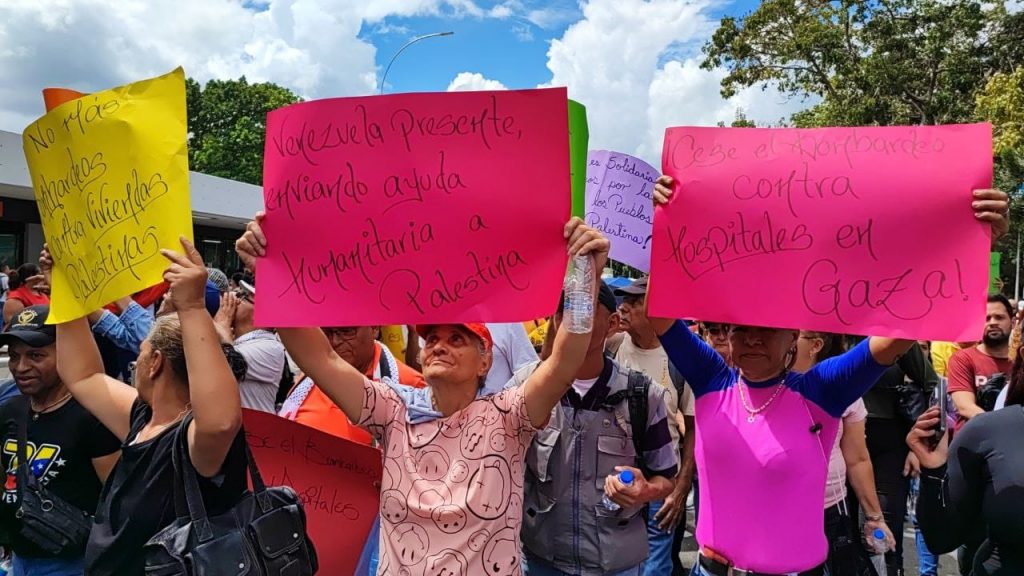 No más
contra Viviendas
Palestinas
Venezuela Presente,
enviando ayuda
Humanitaria a
Palestina
es Solidaria
os por la
los Pueblos
Palestina!
Cese el Bombardeo
contra
Hospitales en
Gaza!
Cese el
Hospitales